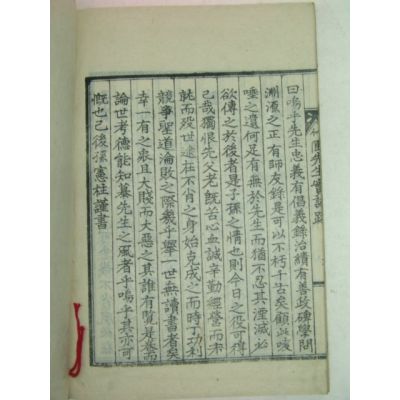 先生實記跋
曰嗚乎先生忠義有倡義錄治績有善政碑學問
淵源之正有師友錄是可以不朽千古矣顧此咳
唾之遺何足有無於先生而猶不忍其湮滅必
欲傳之於後者是子孫之情也則今日之役可得
已哉獨恨先父老旣苦心血誠辛勤經營而未
就而歿世逮桂不肖之身始克成之而時丁功利
競爭聖道淪敗之際幾乎擧一世無讀書者矣
幸一有之衆且大賤而大惡之其誰有覽是卷而
論世考德能知慕先生之風者乎嗚乎其亦可
慨也已後孫憲桂謹書